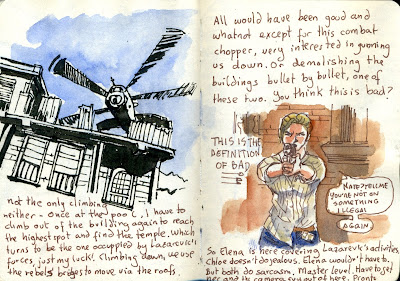 not the only climbing
neither - Once at the pool, I have to
climb out of the building again to reach
the highest spot and find the temple. Which
turns to be the one occupied by Lazarevic's
forces, just my luck! Climbing down, we use
the rebels bridges to move via the roofs.
All would have been good and
whatnot except for this combat
chopper, very interested in gunning
us down. Or demolishing the
buildings bullet by bullet, one of
these two. You think this is bad?
THIS IS THE
DEFINITION
OF BAD
NATE? TELL ME
YOU'RE NOT ON
SOMETHING
ILLEGAL
AGAIN
So Elena is here covering Lazarevic's activities.
Chloe doesn't do jealous. Elena wouldn't have to.
But both do sarcasm. Master level. Have to get
her and the camera guy out of here. Pronto